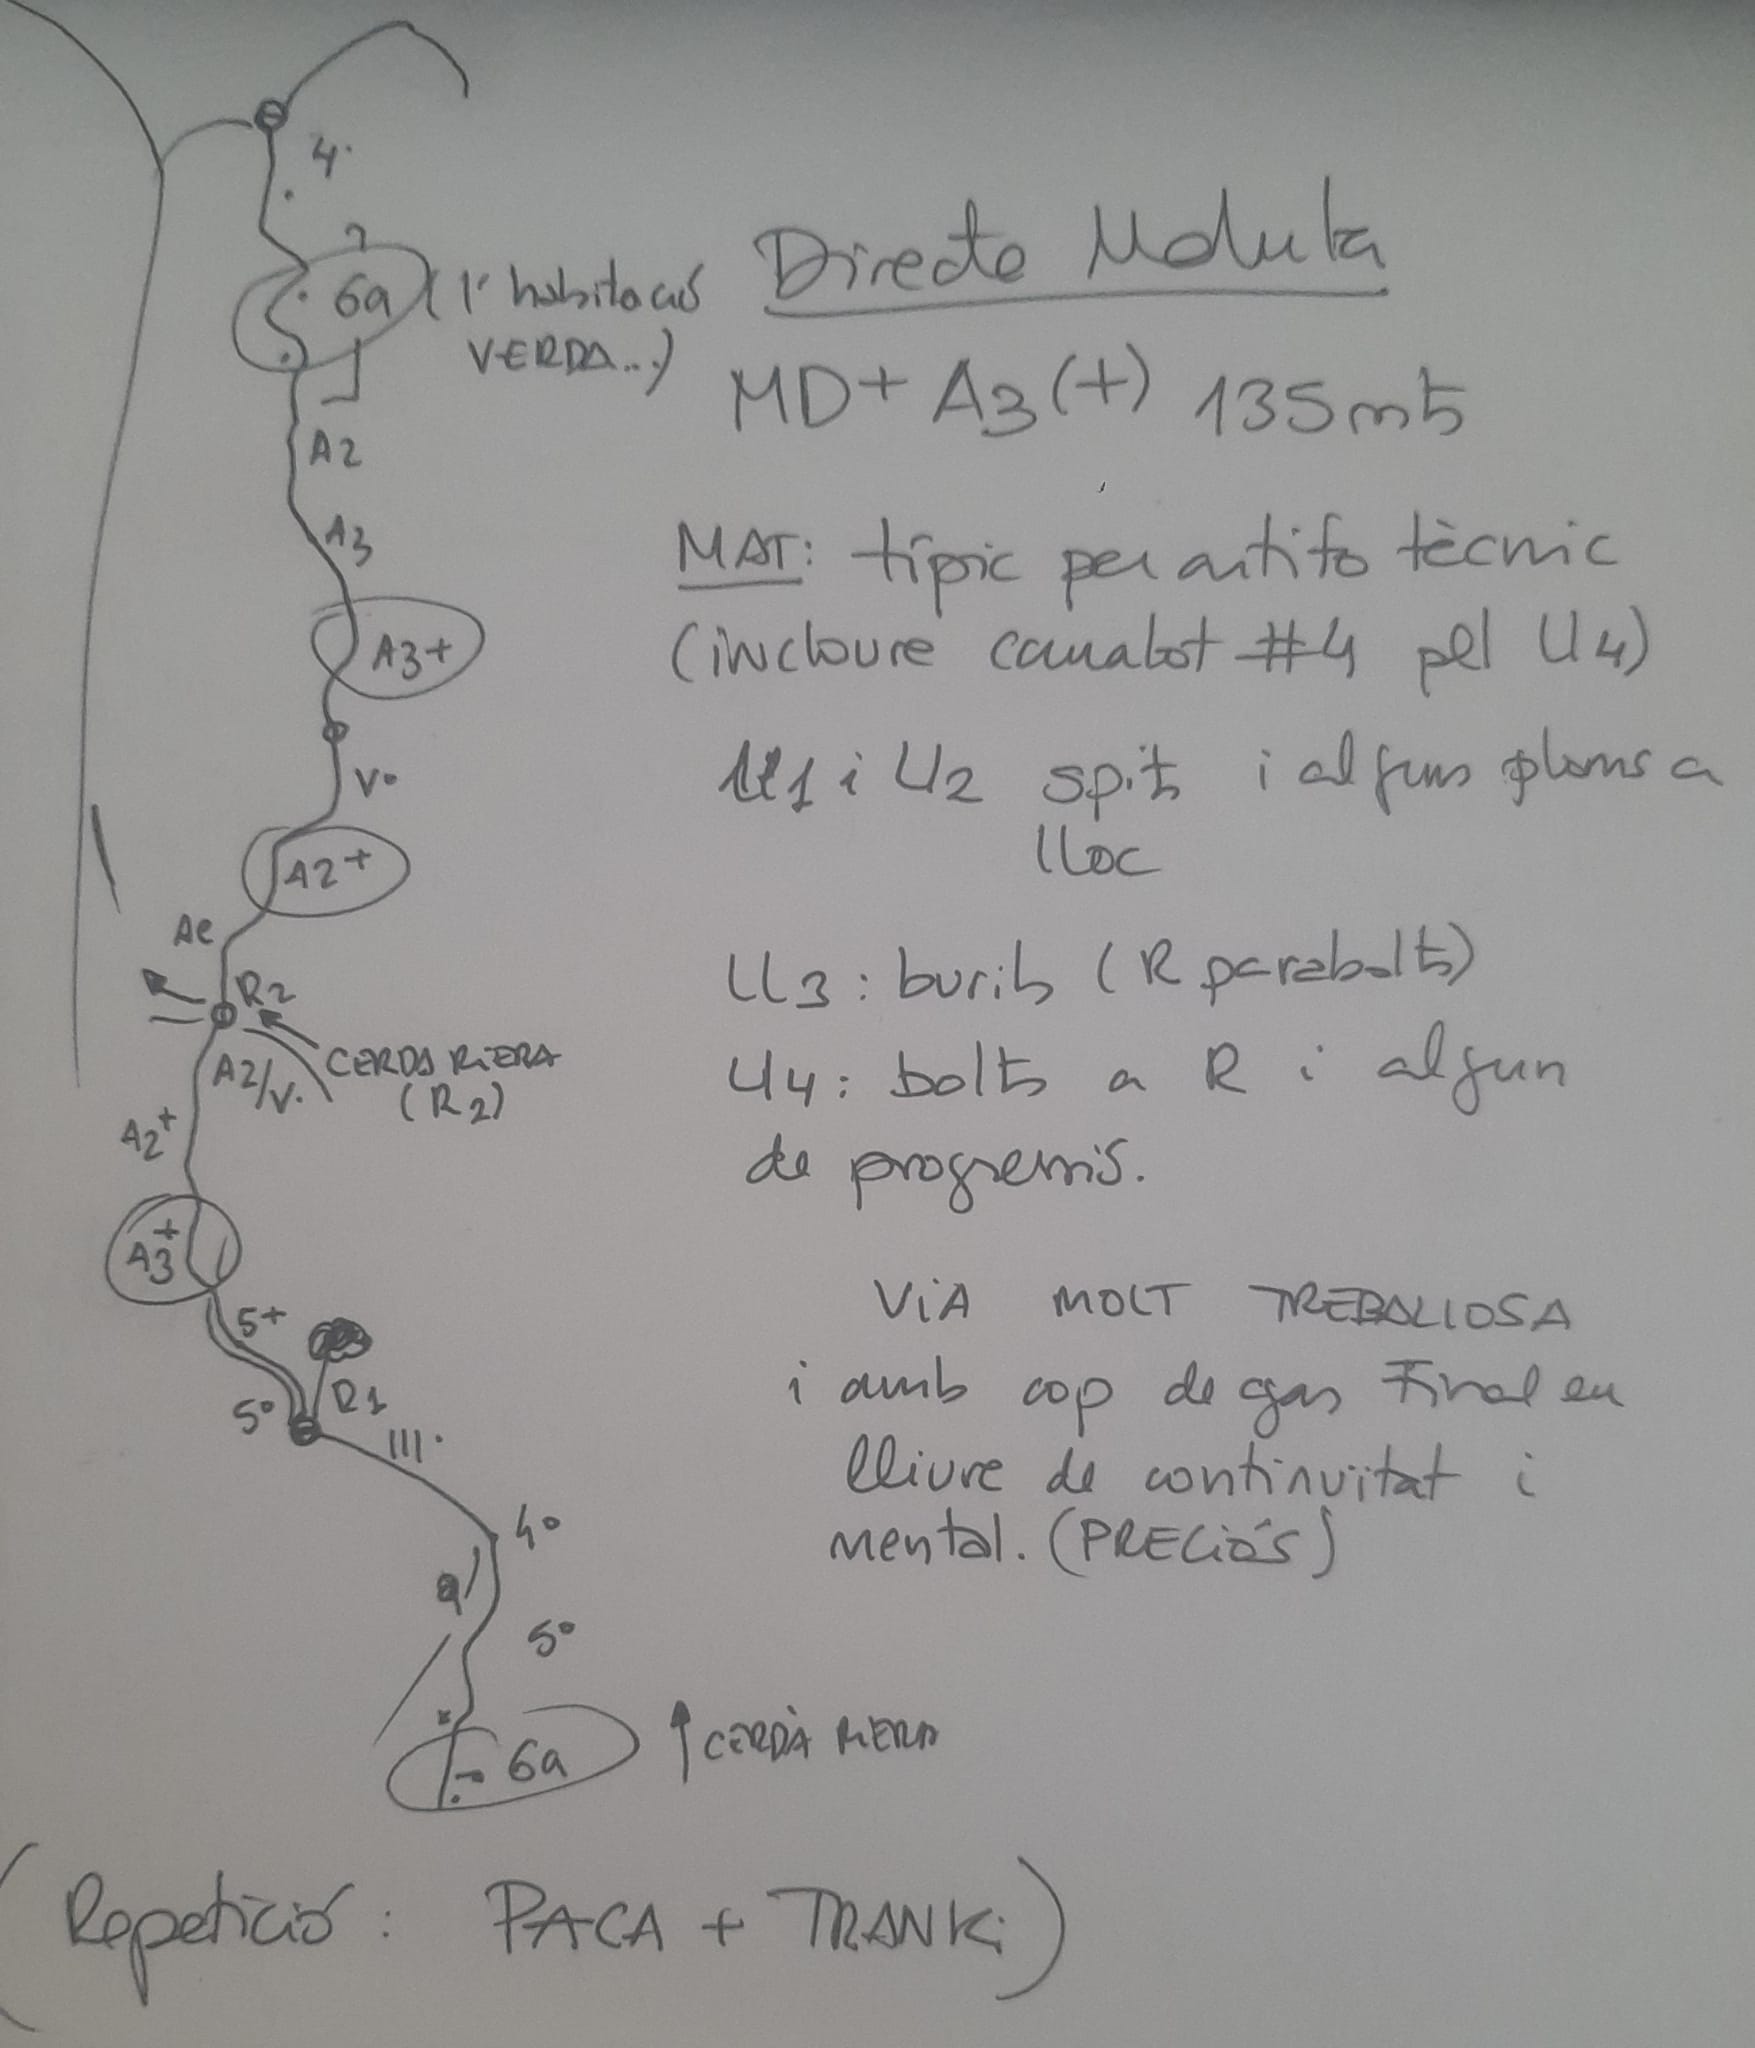 4.
6a
(l'habitació
VERDA...)
A2
A3
A3+
Vo
A2+
Ae
R2
CERDA RIERA
(R2)
A2/V.
A2+
A3+
5+
R1
5º
III.
4º
5º
6a
↑ CERDÀ RIERA
Directa
MD+ A3(+) 135mts
MAT: típic per artifo tècnic
(incloure camalot #4 pel LL4)
LL1 i LL2 spits i algun ploms a
lloc
LL3: burils (R parabolts)
LL4: bolts a R i algun
de progressió.
ViA MOLT TREBALLOSA
i amb cop de gas Final en
lliure de continuïtat i
mental. (PRECIÓS)
(Repetició: PACA + TRANKi)